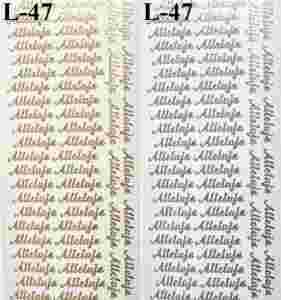 L-47 L-47
Alleluja Alleluja Alleluja Alleluja
Alleluja Alleluja Alleluja Alleluja
Alleluja Alleluja Alleluja Alleluja
Alleluja Alleluja Alleluja Alleluja
Alleluja Alleluja Alleluja Alleluja
Alleluja Alleluja Alleluja Alleluja
Alleluja Alleluja Alleluja Alleluja
Alleluja Alleluja Alleluja Alleluja
Alleluja Alleluja Alleluja Alleluja
Alleluja Alleluja Alleluja Alleluja
Alleluja Alleluja Alleluja Alleluja
Alleluja Alleluja Alleluja Alleluja
Alleluja Alleluja Alleluja Alleluja
Alleluja Alleluja Alleluja Alleluja
Alleluja Alleluja Alleluja Alleluja
Alleluja Alleluja Alleluja Alleluja
Alleluja Alleluja Alleluja Alleluja
Alleluja Alleluja Alleluja Alleluja
Alleluja Alleluja Alleluja Alleluja
Alleluja Alleluja Alleluja Alleluja Alleluja Alleluja
Alleluja Alleluja Alleluja Alleluja Alleluja Alleluja
Alleluja Alleluja Alleluja Alleluja Alleluja Alleluja
Alleluja Alleluja Alleluja Alleluja Alleluja Alleluja